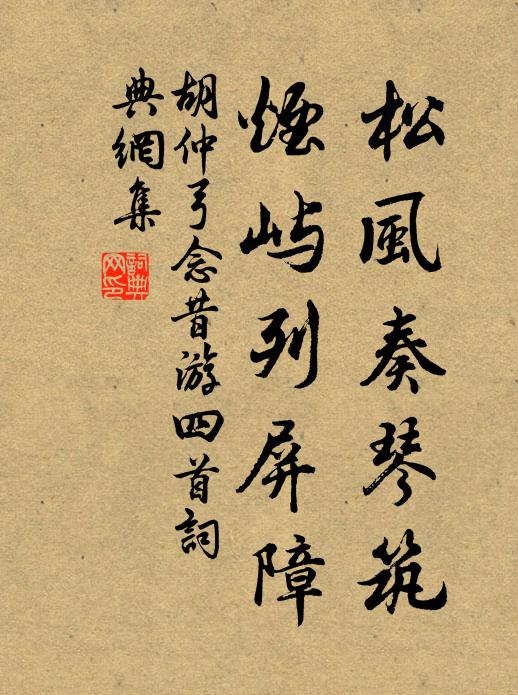 松風奏琴筑
煙嶼列屏障
胡仲弓念昔游四首詞
典網集
詞典網印